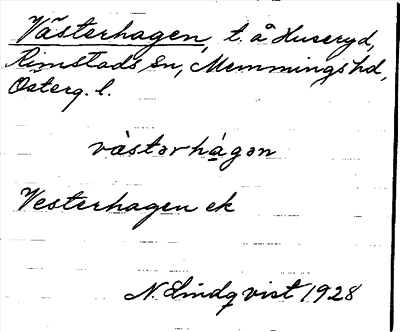 Västerhagen, t. å Huseryd,
Rimstads sn, Memmings hd,
Österg. l.
västərhágən
Vesterhagen ek
N. Lindqvist 1928